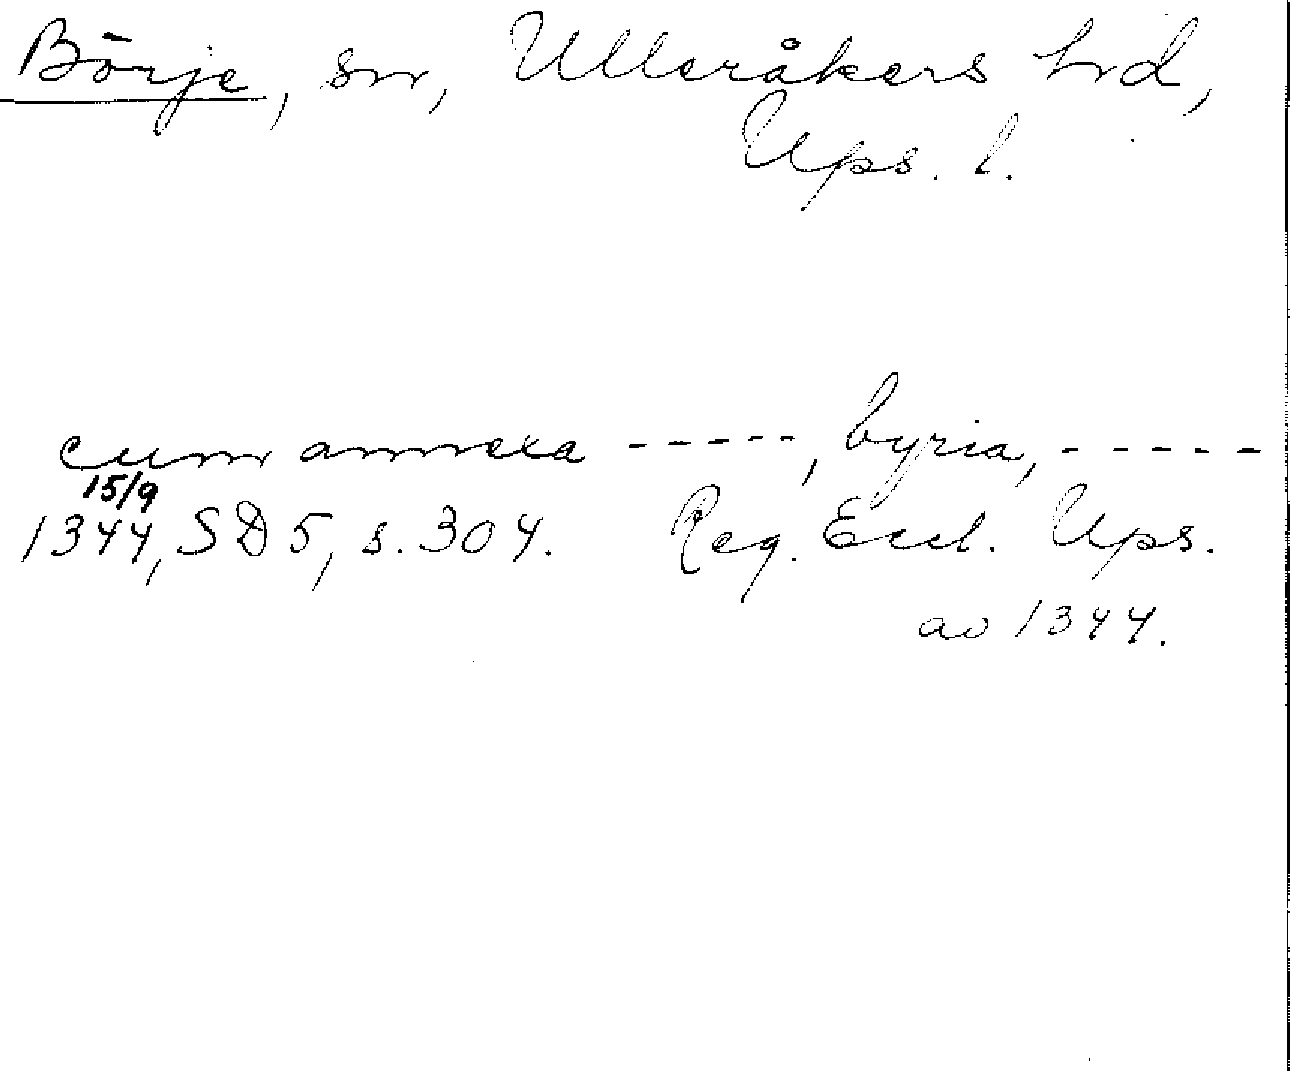 Börje, sn, Ulleråkers hd,
Ups. l.
cum annexa -----, byria, -----
15/9
1344, SD 5, s. 304. Reg. Eccl. Ups.
av 1344.